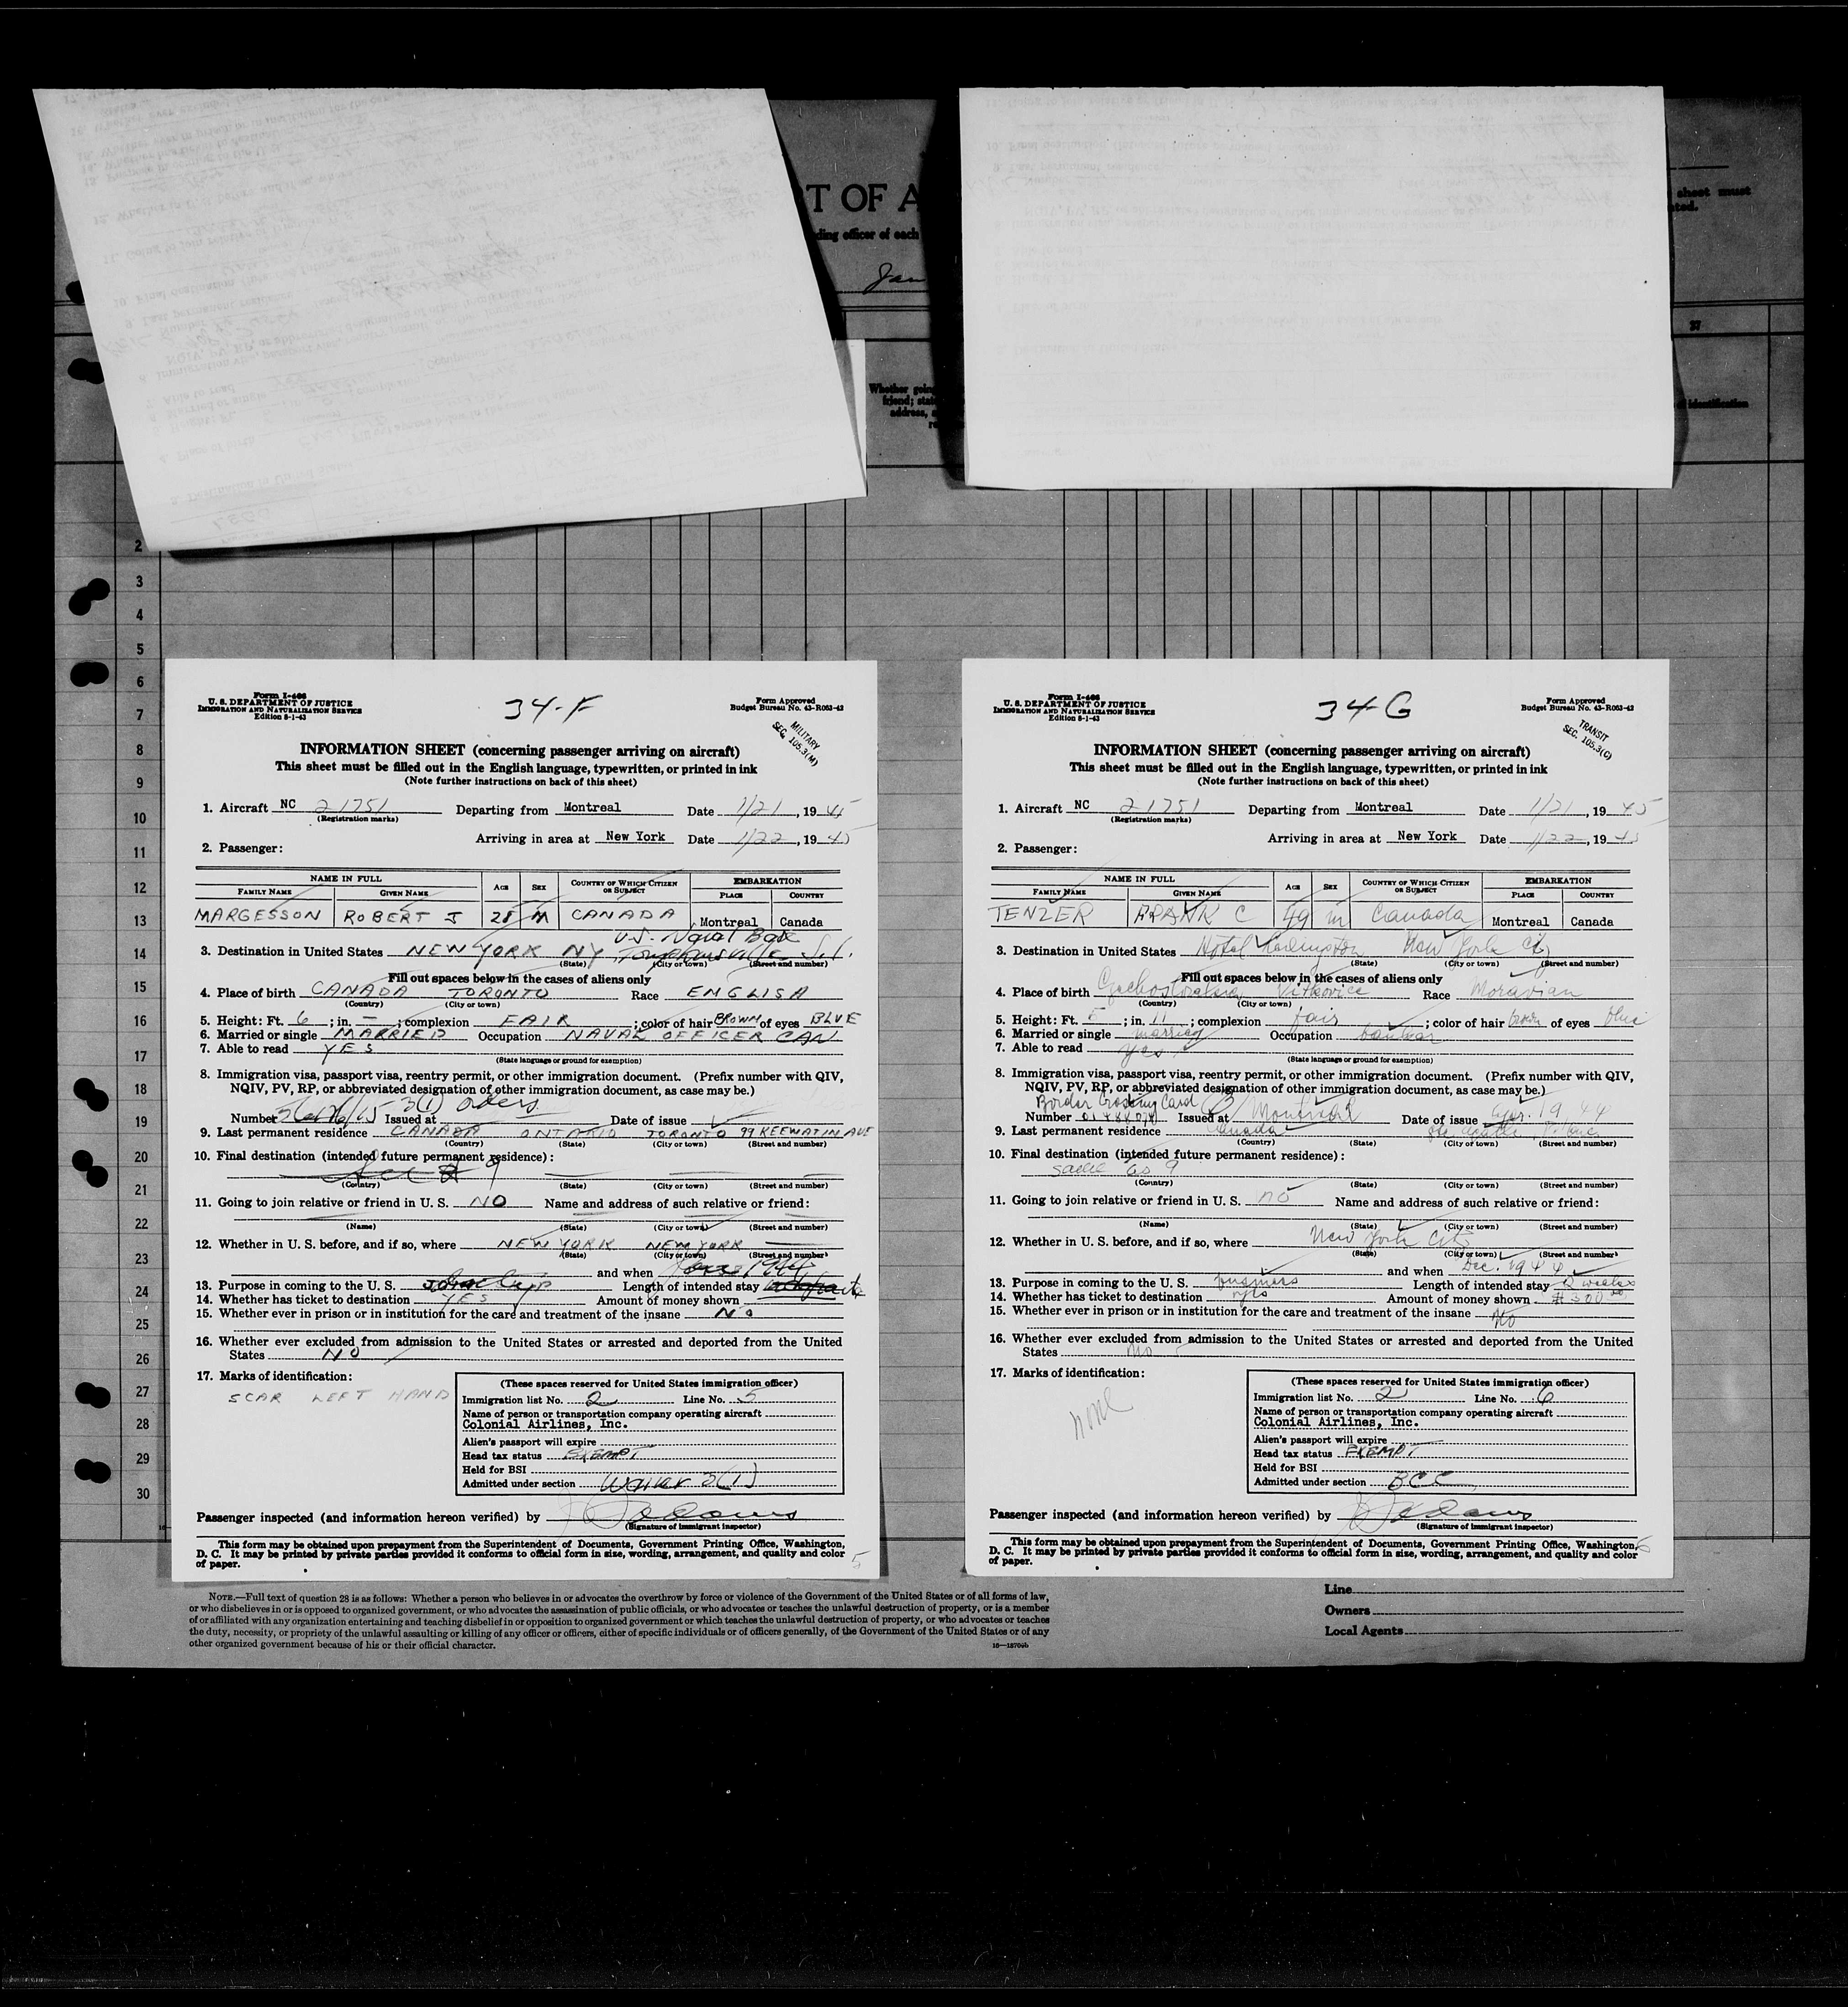 T OF A
sheet must
ding officer of each
Jan
37
Whether going
friend; state
address,
identification
2
3
4
5
6
7
8
9
10
11
12
13
14
15
16
17
18
19
20
21
22
23
24
25
26
27
28
29
30
Form I-466
U. S. DEPARTMENT OF JUSTICE
IMMIGRATION AND NATURALIZATION SERVICE
Edition 8-1-43
34-F
Form Approved
Budget Bureau No. 43-R063-42
MILITARY
SEC. 105.3(M)
INFORMATION SHEET (concerning passenger arriving on aircraft)
This sheet must be filled out in the English language, typewritten, or printed in ink
(Note further instructions on back of this sheet)
1. Aircraft NC 21751 Departing from Montreal Date 1/21, 1945
(Registration marks)
Arriving in area at New York Date 1/22, 1945
2. Passenger:
NAME IN FULL AGE SEX COUNTRY OF WHICH CITIZEN OR SUBJECT EMBARKATION
FAMILY NAME GIVEN NAME PLACE COUNTRY
MARGESSON ROBERT J 28 M CANADA Montreal Canada
U.S. Naval Base
3. Destination in United States NEW YORK NY Tompkinsville S.I.
(State) (City or town) (Street and number)
Fill out spaces below in the cases of aliens only
4. Place of birth CANADA TORONTO Race ENGLISH
(Country) (City or town)
5. Height: Ft. 6; in. –; complexion FAIR; color of hair BROWN of eyes BLUE
6. Married or single MARRIED Occupation NAVAL OFFICER CAN
7. Able to read YES
(State language or ground for exemption)
8. Immigration visa, passport visa, reentry permit, or other immigration document. (Prefix number with QIV,
NQIV, PV, RP, or abbreviated designation of other immigration document, as case may be.)
3(1) orders
Number Issued at Date of issue
9. Last permanent residence CANADA ONTARIO TORONTO 99 KEEWATIN AVE
(Country) (State) (City or town) (Street and number)
10. Final destination (intended future permanent residence):
See # 9
(Country) (State) (City or town) (Street and number)
11. Going to join relative or friend in U. S. NO Name and address of such relative or friend:
(Name) (State) (City or town) (Street and number)
12. Whether in U. S. before, and if so, where NEW YORK NEW YORK
(State) (City or town) (Street and number)
and when 1944
13. Purpose in coming to the U. S. Length of intended stay
14. Whether has ticket to destination YES Amount of money shown
15. Whether ever in prison or in institution for the care and treatment of the insane No
16. Whether ever excluded from admission to the United States or arrested and deported from the United
States NO
17. Marks of identification:
SCAR LEFT HAND
(These spaces reserved for United States immigration officer)
Immigration list No. 2 Line No. 5
Name of person or transportation company operating aircraft
Colonial Airlines, Inc.
Alien's passport will expire
Head tax status EXEMPT
Held for BSI
Admitted under section Waiver 3(1)
Passenger inspected (and information hereon verified) by
(Signature of immigrant inspector)
This form may be obtained upon prepayment from the Superintendent of Documents, Government Printing Office, Washington,
D. C. It may be printed by private parties provided it conforms to official form in size, wording, arrangement, and quality and color
of paper.
5
Form I-466
U. S. DEPARTMENT OF JUSTICE
IMMIGRATION AND NATURALIZATION SERVICE
Edition 8-1-43
34-G
Form Approved
Budget Bureau No. 43-R063-42
TRANSIT
SEC. 105.3(C)
INFORMATION SHEET (concerning passenger arriving on aircraft)
This sheet must be filled out in the English language, typewritten, or printed in ink
(Note further instructions on back of this sheet)
1. Aircraft NC 21751 Departing from Montreal Date 1/21, 1945
(Registration marks)
Arriving in area at New York Date 1/22, 1945
2. Passenger:
NAME IN FULL AGE SEX COUNTRY OF WHICH CITIZEN OR SUBJECT EMBARKATION
FAMILY NAME GIVEN NAME PLACE COUNTRY
TENZER FRANK C 49 m Canada Montreal Canada
3. Destination in United States Hotel New York City
(State) (City or town) (Street and number)
Fill out spaces below in the cases of aliens only
4. Place of birth Czechoslovakia Vitkovice Race Moravian
(Country) (City or town)
5. Height: Ft. 5; in. 11; complexion fair; color of hair brown of eyes blue
6. Married or single married Occupation
7. Able to read yes
(State language or ground for exemption)
8. Immigration visa, passport visa, reentry permit, or other immigration document. (Prefix number with QIV,
NQIV, PV, RP, or abbreviated designation of other immigration document, as case may be.)
Border Crossing Card
Number Issued at Montreal Date of issue Apr. 19, 44
9. Last permanent residence Canada
(Country) (State) (City or town) (Street and number)
10. Final destination (intended future permanent residence):
same as 9
(Country) (State) (City or town) (Street and number)
11. Going to join relative or friend in U. S. no Name and address of such relative or friend:
(Name) (State) (City or town) (Street and number)
12. Whether in U. S. before, and if so, where New York City
(State) (City or town) (Street and number)
and when Dec. 1944
13. Purpose in coming to the U. S. business Length of intended stay 2 weeks
14. Whether has ticket to destination yes Amount of money shown $300.00
15. Whether ever in prison or in institution for the care and treatment of the insane No
16. Whether ever excluded from admission to the United States or arrested and deported from the United
States No
17. Marks of identification:
none
(These spaces reserved for United States immigration officer)
Immigration list No. 2 Line No. 6
Name of person or transportation company operating aircraft
Colonial Airlines, Inc.
Alien's passport will expire
Head tax status EXEMPT
Held for BSI
Admitted under section BCC
Passenger inspected (and information hereon verified) by
(Signature of immigrant inspector)
This form may be obtained upon prepayment from the Superintendent of Documents, Government Printing Office, Washington,
D. C. It may be printed by private parties provided it conforms to official form in size, wording, arrangement, and quality and color
of paper.
6
NOTE.—Full text of question 28 is as follows: Whether a person who believes in or advocates the overthrow by force or violence of the Government of the United States or of all forms of law,
or who disbelieves in or is opposed to organized government, or who advocates the assassination of public officials, or who advocates or teaches the unlawful destruction of property, or is a member
of or affiliated with any organization entertaining and teaching disbelief in or opposition to organized government or which teaches the unlawful destruction of property, or who advocates or teaches
the duty, necessity, or propriety of the unlawful assaulting or killing of any officer or officers, either of specific individuals or of officers generally, of the Government of the United States or of any
other organized government because of his or their official character.
Line
Owners
Local Agents